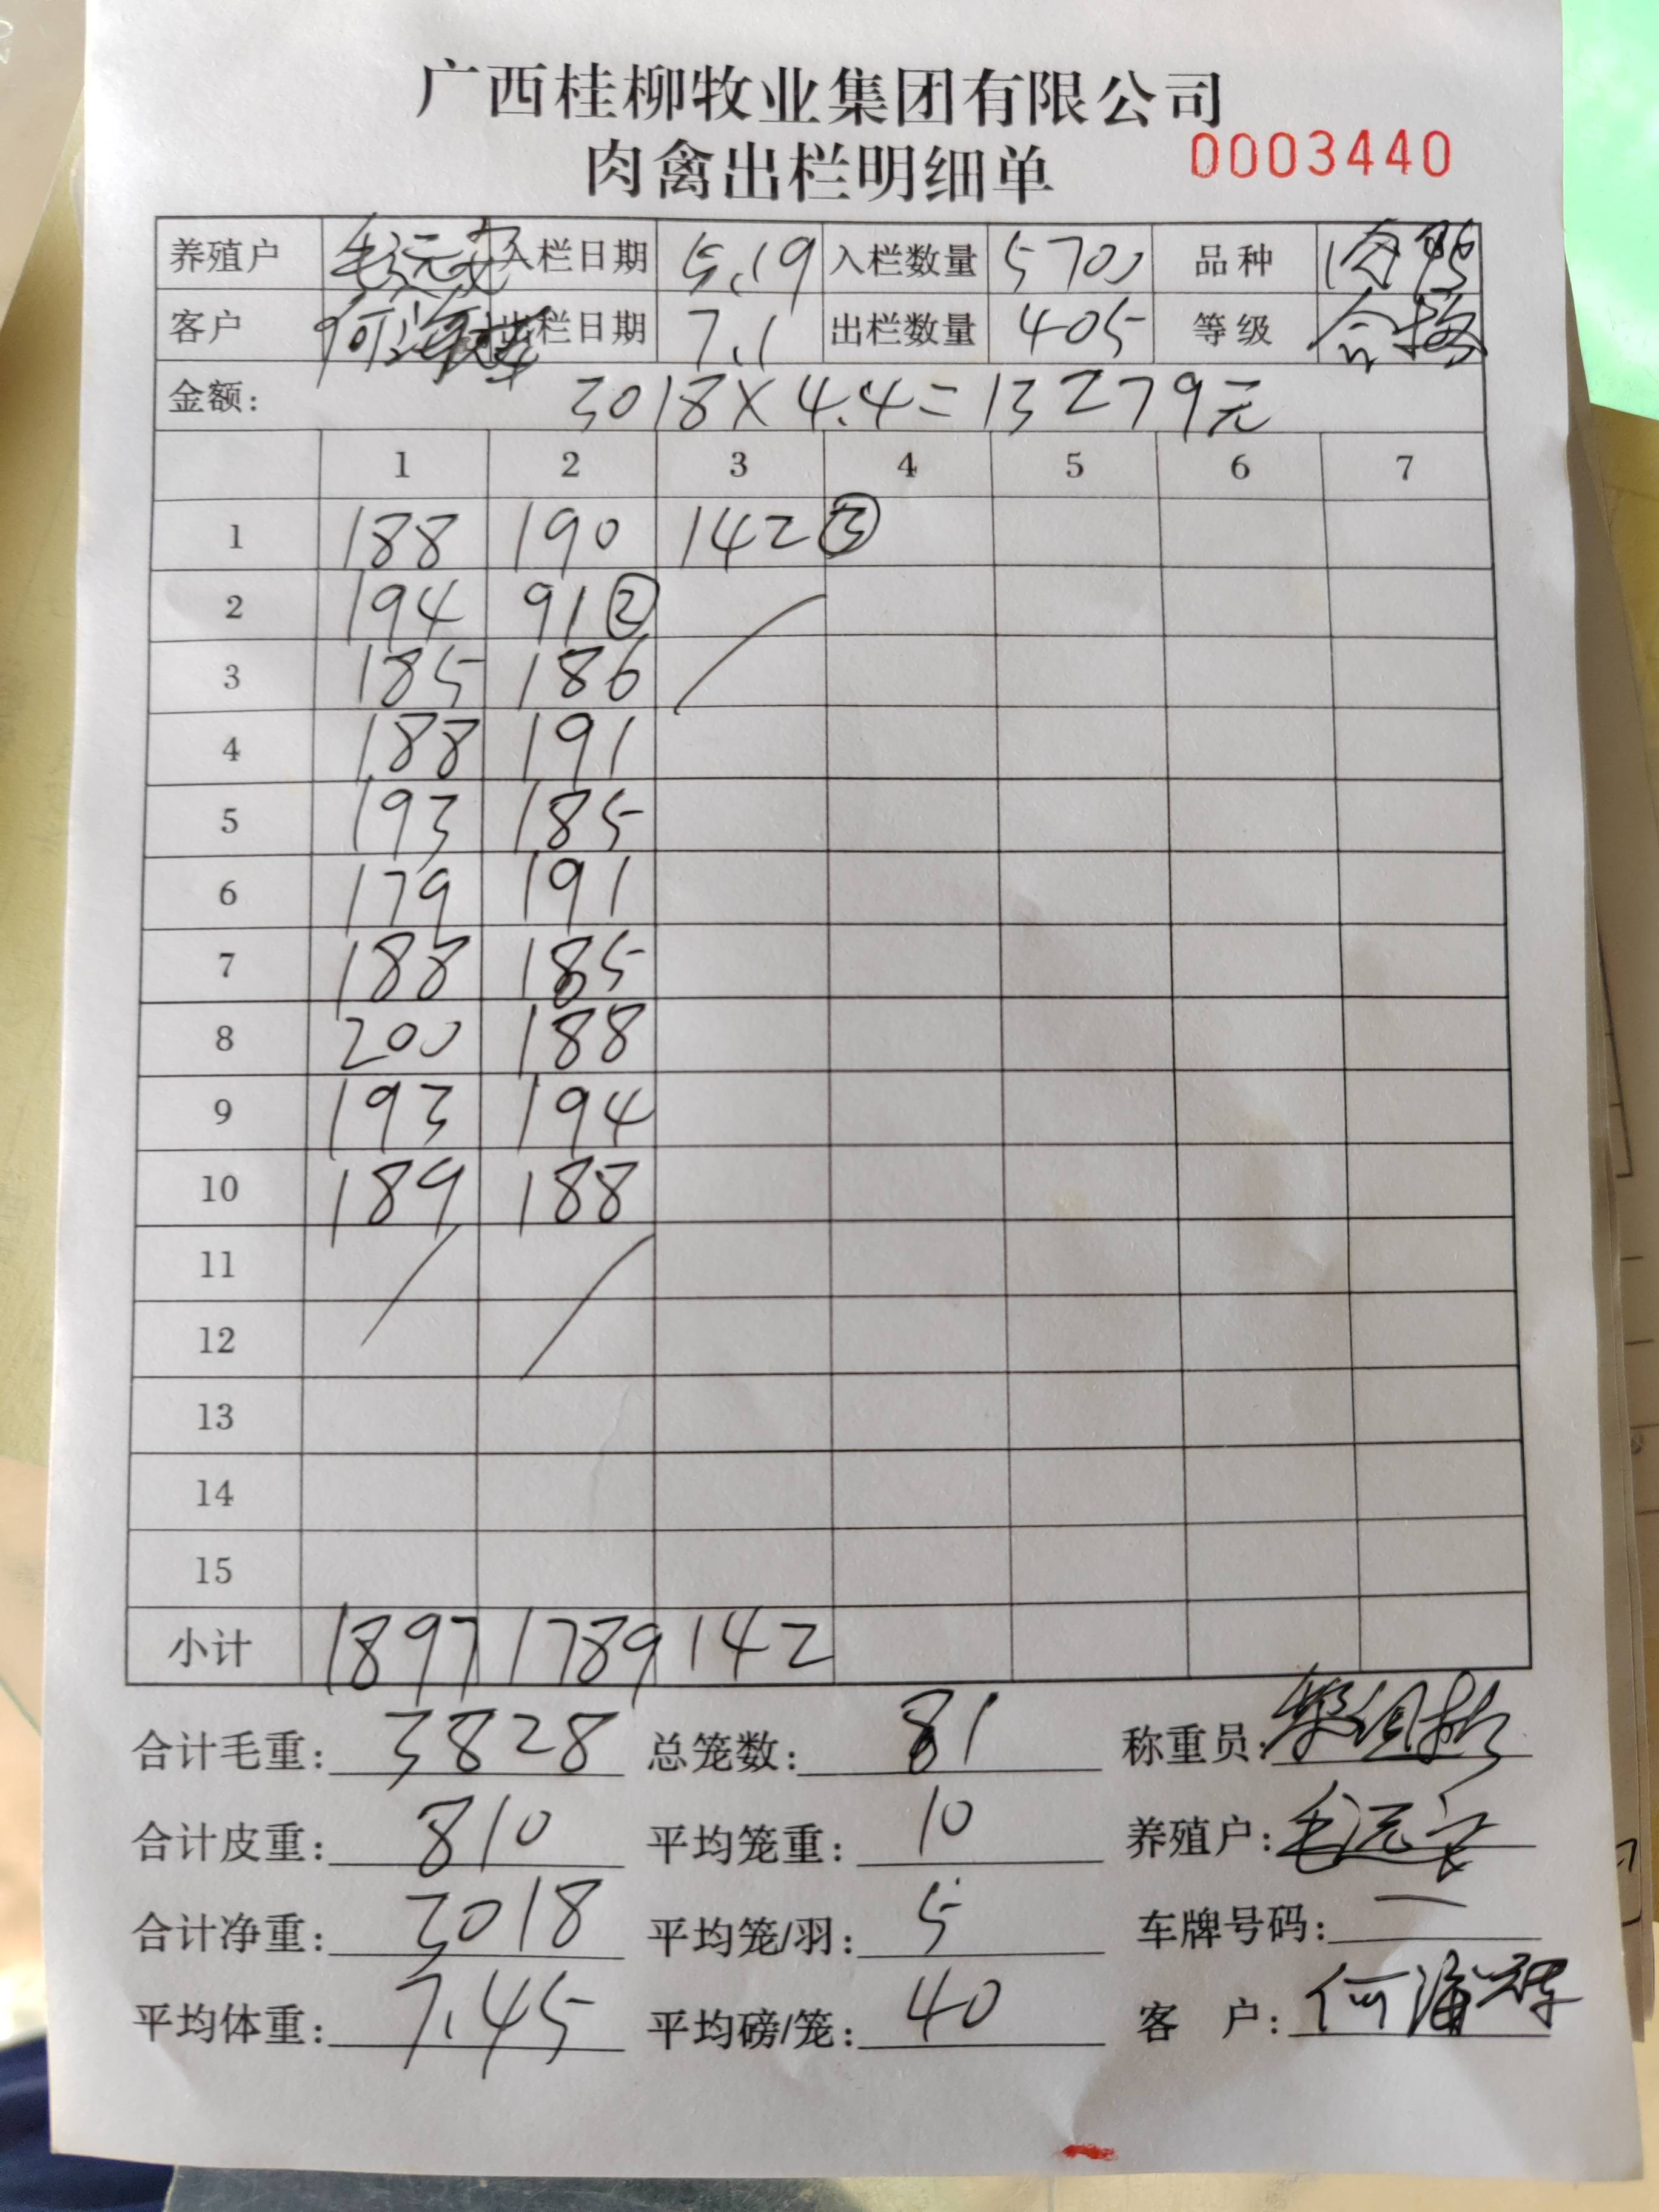 广西桂柳牧业集团有限公司
肉禽出栏明细单 0003440
养殖户 毛远安 入栏日期 5.19 入栏数量 5700 品种
客户 何海 出栏日期 7.1 出栏数量 405 等级 合格
金额: 3018×4.4=13279元
1 2 3 4 5 6 7
1 188 190 142 ③
2 194 91 ②
3 185 186
4 188 191
5 193 185
6 179 191
7 188 185
8 200 188
9 193 194
10 189 188
11
12
13
14
15
小计 1897 1789 142
合计毛重: 3828 总笼数: 81 称重员:
合计皮重: 810 平均笼重: 10 养殖户: 毛远安
合计净重: 3018 平均笼/羽: 5 车牌号码: 一
平均体重: 7.45 平均磅/笼: 40 客 户: 何海